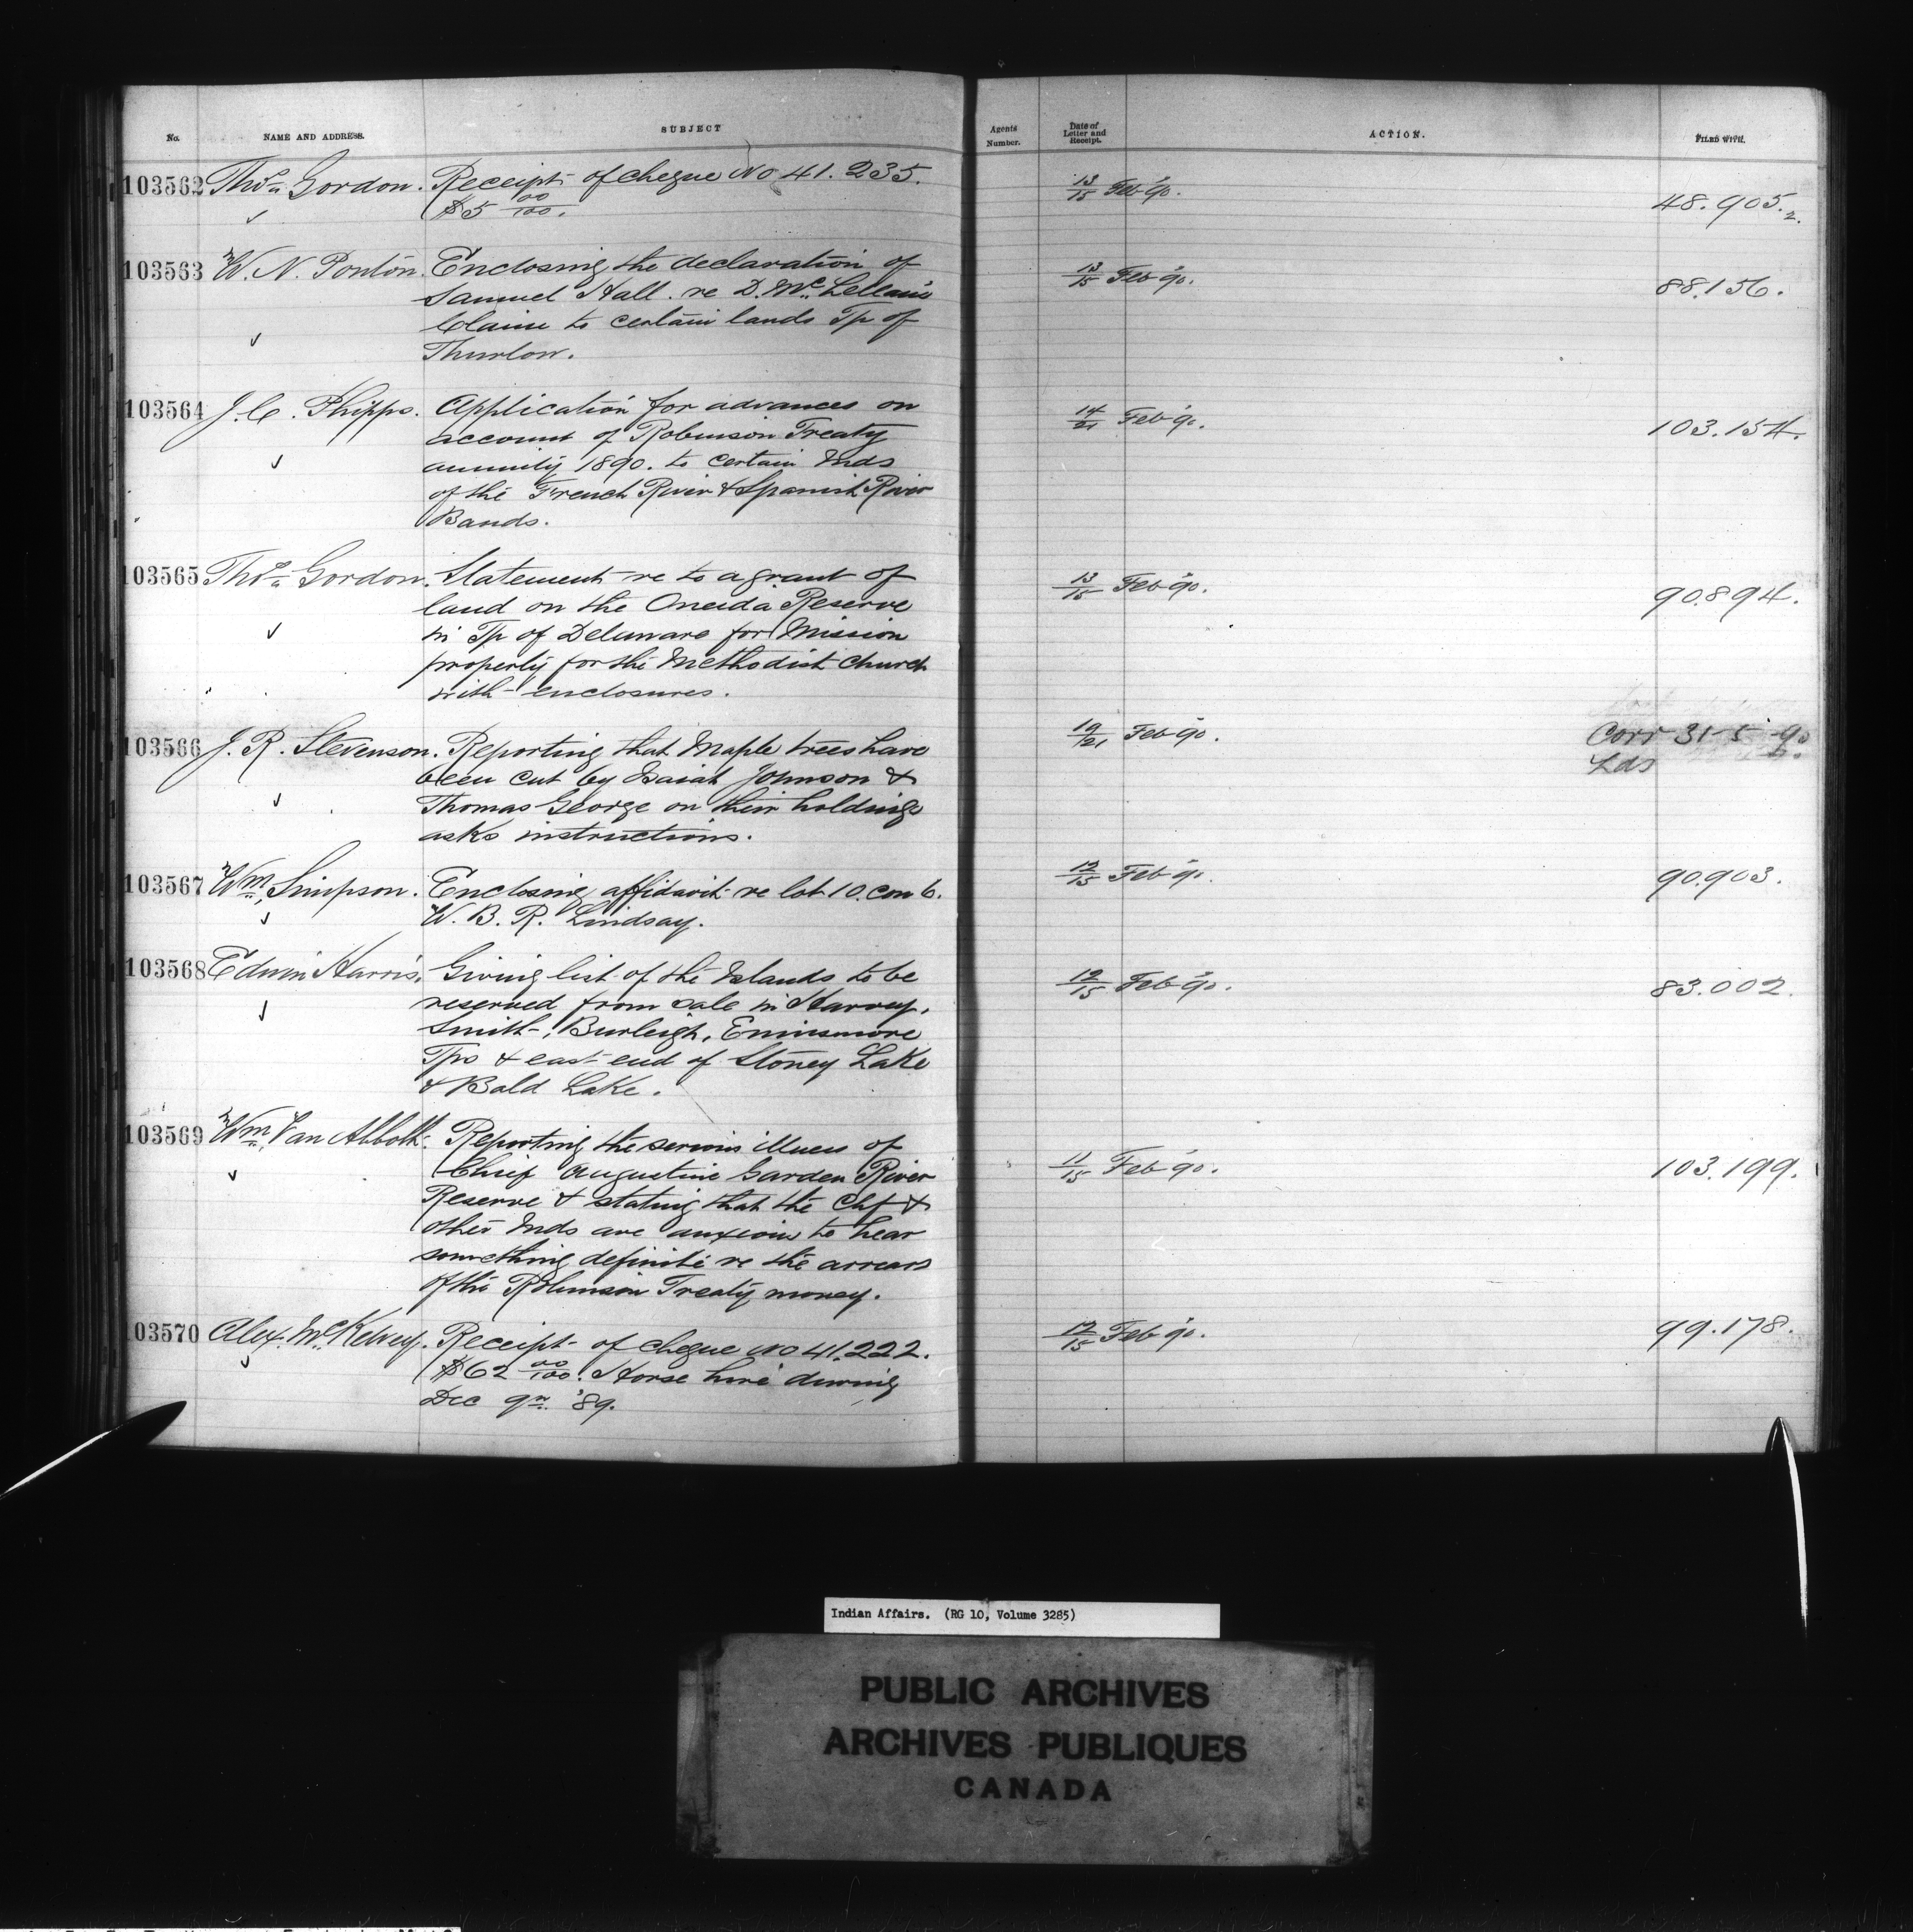 No. NAME AND ADDRESS. SUBJECT Agents Number. Date of Letter and Receipt. ACTION. FILED WITH.
103562 Thos. Gordon. Receipt of cheque No 41.235. 13/15 Feb '90. 48.905.2.
$5 00/100.
103563 W. N. Ponton. Enclosing the declaration of 13/15 Feb '90. 88.156.
Samuel Hall. re D. McLellan's
Claim to certain lands Tp of
Thurlow.
103564 J. C. Phipps. Application for advances on 14/21 Feb '90. 103.154.
account of Robinson Treaty
annuity 1890. to certain Inds
of the French River & Spanish River
Bands.
103565 Thos. Gordon. Statement re to a grant of 13/15 Feb '90. 90.894.
land on the Oneida Reserve
in Tp of Delaware for Mission
property for the Methodist Church
with enclosures.
103566 J. R. Stevenson. Reporting that Maple trees have 19/21 Feb '90. Corr 31-5-90
been cut by Isaiah Johnson & Lds
Thomas George on their holdings
asks instructions.
103567 Wm. Simpson. Enclosing affidavit re lot 10. con 6. 12/15 Feb '90. 90.903.
W. B. R. Lindsay.
103568 Edwin Harris. Giving list of the Islands to be 12/15 Feb '90. 83.002.
reserved from sale in Harvey,
Smith, Burleigh, Ennismore
Tps & east end of Stoney Lake
& Bald Lake.
103569 Wm. Van Abbott. Reporting the serious illness of 11/15 Feb '90. 103.199.
Chief Augustine Garden River
Reserve & stating that the Chf &
other Inds are anxious to hear
something definite re the arrears
of the Robinson Treaty money.
103570 Alex. McKelvey. Receipt of cheque No 41.222. 12/15 Feb '90. 99.178.
$62 00/100. Horse hire during
Dec qr. '89.
Indian Affairs. (RG 10, Volume 3285)
PUBLIC ARCHIVES
ARCHIVES PUBLIQUES
CANADA